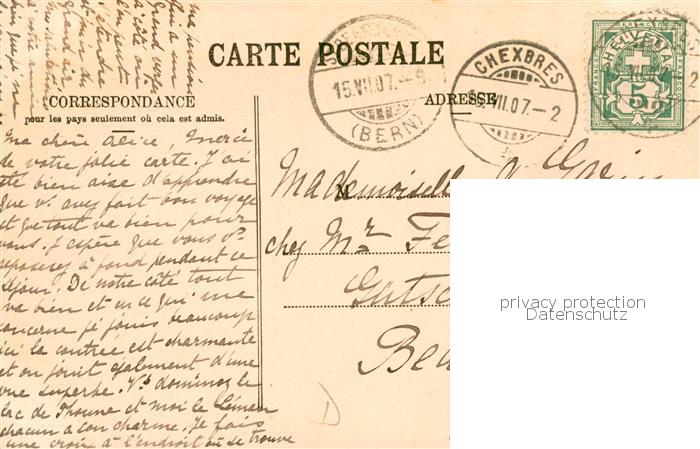 CARTE POSTALE
CORRESPONDANCE
pour les pays seulement où cela est admis.
ADRESSE
15.VII.07.
(BERN)
CHEXBRES
VII.07.-2
HELVETIA
5
Ma chère Alice, Merci
de votre jolie carte. J'ai
été bien aise d'apprendre
que vs. avez fait bon voyage
et que tout va bien pour
vous. J'espère que vous vs.
reposerez à fond pendant ce
séjour. De notre côté tout
va bien et en ce qui me
concerne je jouis beaucoup
ici la contrée est charmante
et on jouit également d'une
vue superbe. Vs. dominez le
lac de Thoune et moi le Léman
chacun a son charme. Je fais
une croix à l'endroit où se trouve
Mademoiselle
M
chez Mr. Fe
Gutsc
Bea
D
privacy protection
Datenschutz